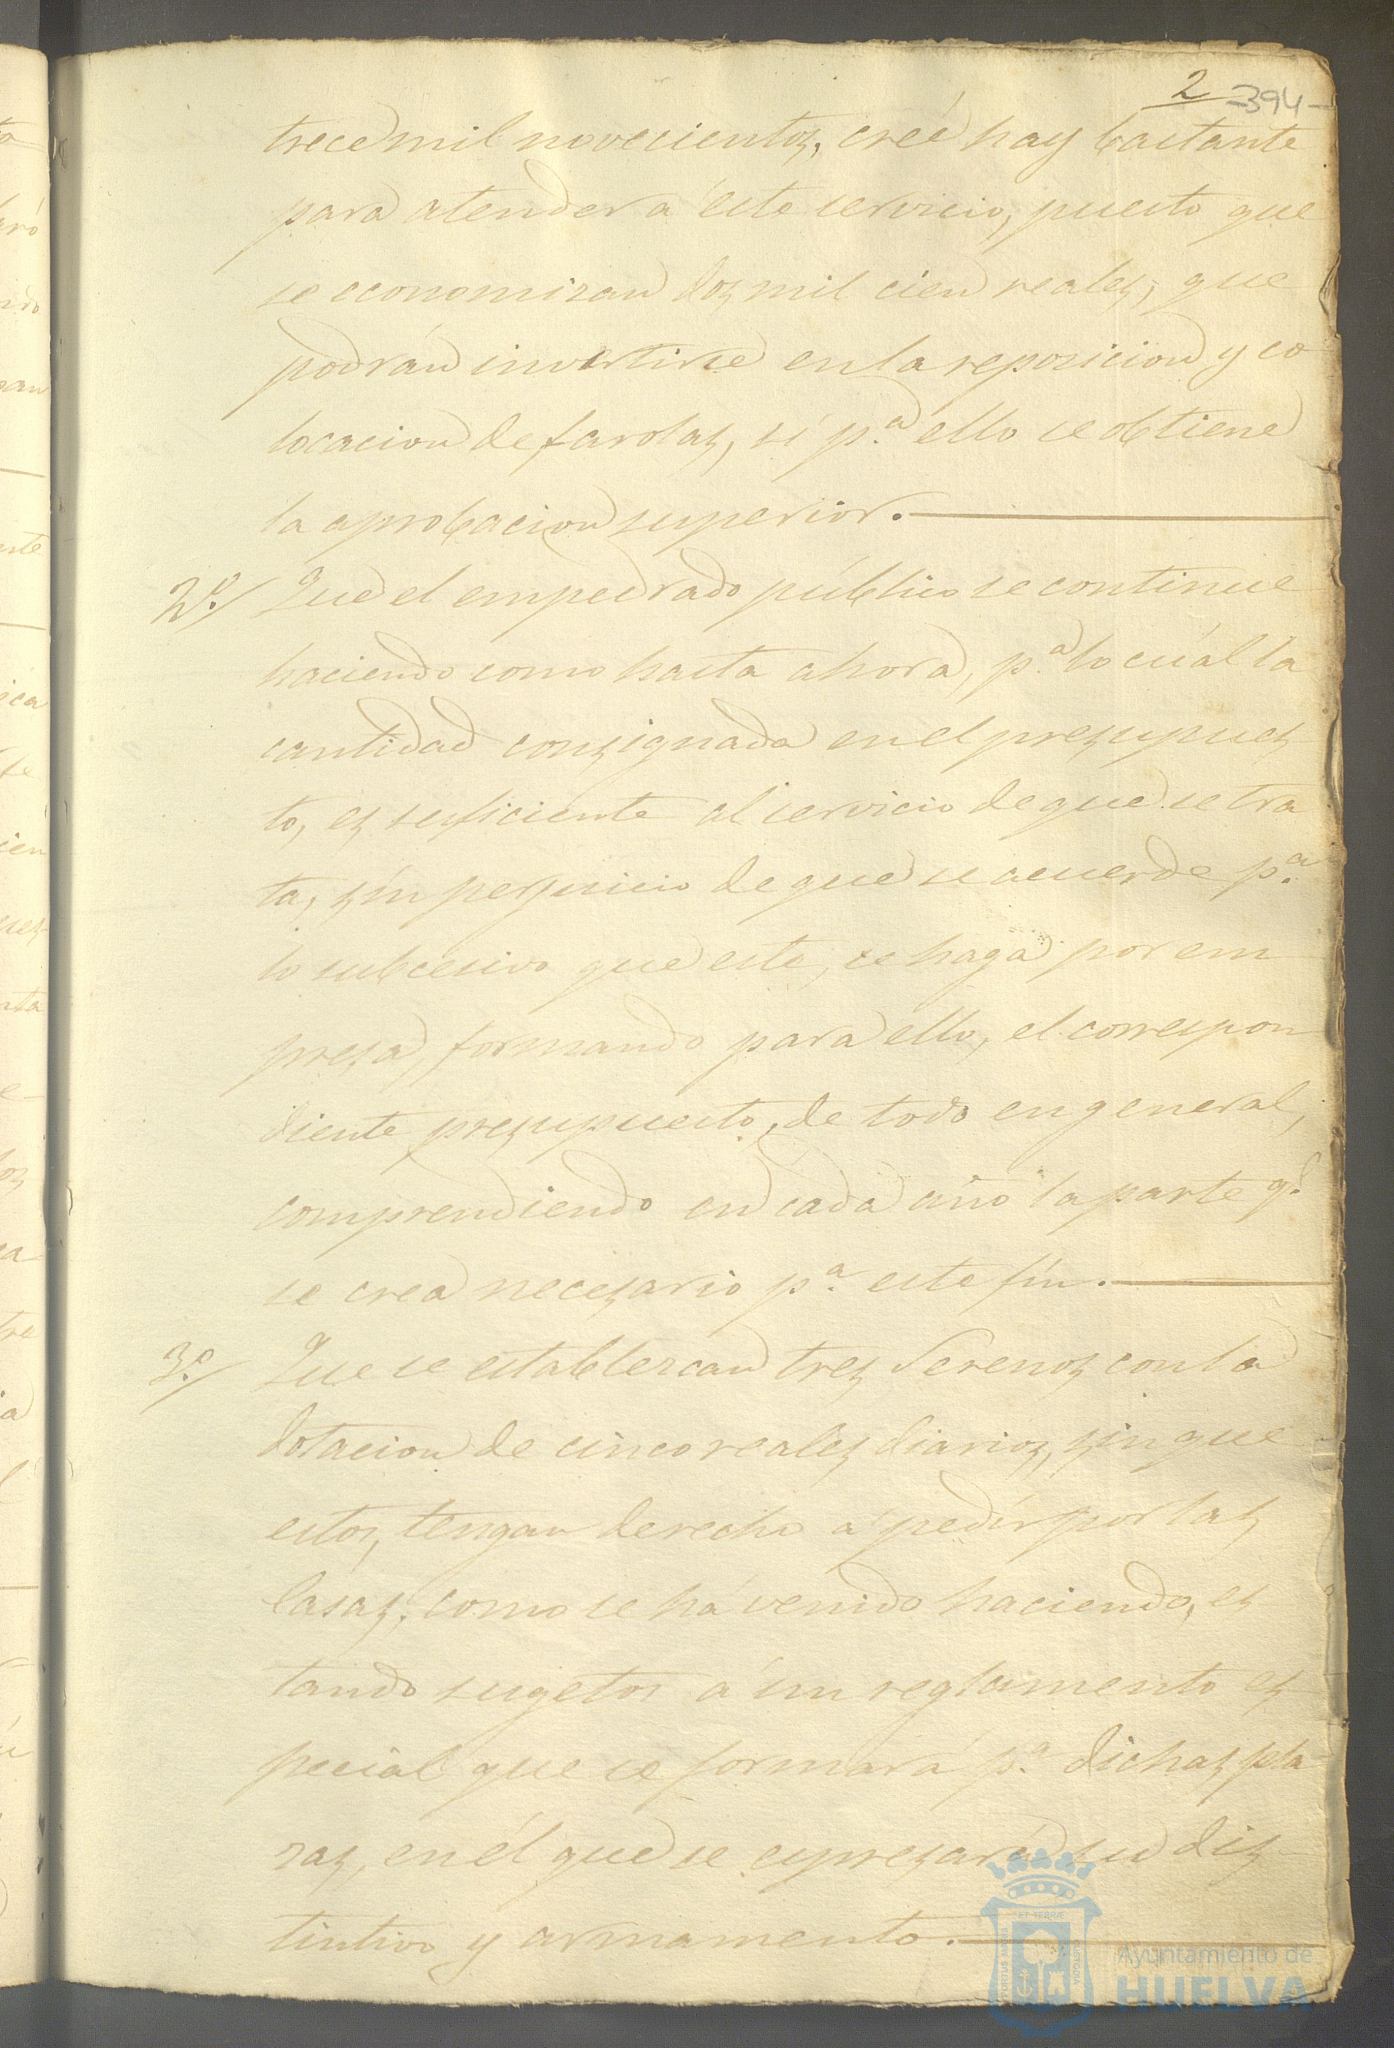 2 -394-
trece mil novecientos, creé hay bastante
para atender á este servicio, puesto que
se economizan dos mil cien reales, que
podrán invertirse en la reposicion y co
locacion de farolas, sí p.ª ello se obtiene
la aprobacion superior.
2º/ Que el empedrado público se continue
haciendo como hasta ahora, p.ª lo cuál la
cantidad consignada en el presupues
to, es suficiente al servicio de que se tra
ta, sín perjuicio de que se acuerde p.ª
lo subcesivo que este, se haga por em
presa, formando para ello, el correspon
diente presupuesto, de todo en general,
comprendiendo en cada año la parte q.e
se crea necesario p.ª este fín.
3º/ Que se establezcan tres Serenos con la
dotacion de cinco reales diarios, sin que
estos, tengan derecho á pedír por las
casas, como se há venido haciendo, es
tando sugetos á un reglamento es
pecial que se formará p.ª dichas pla
zas, en él que se espresará su dis
tintivo y armamento.
Ayuntamiento de
HUELVA